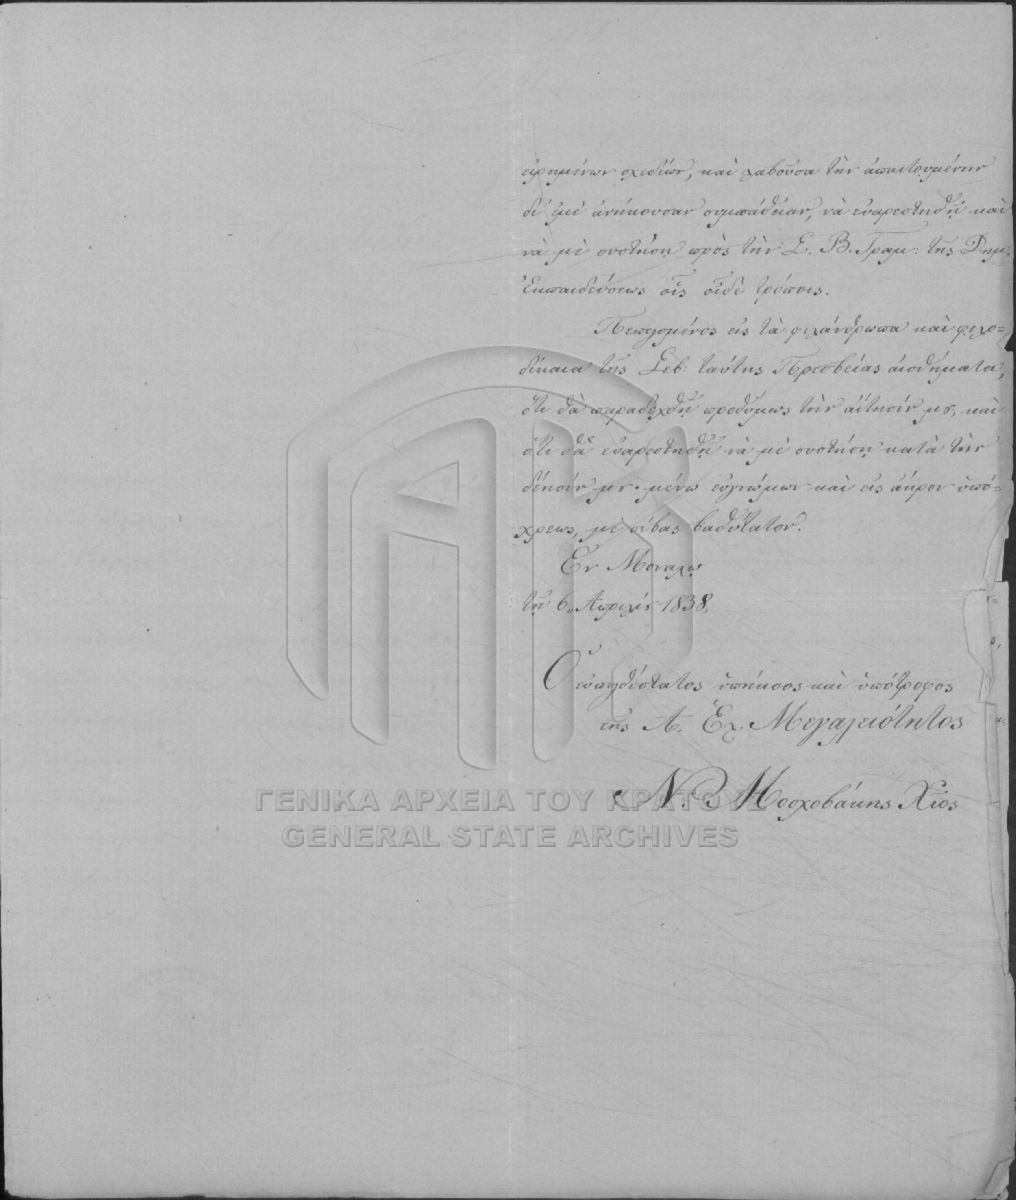 εἰρημένων σχεδίων, καὶ λαβοῦσα τὴν ἀπαιτουμένην
δι' ἐμὲ ἀνήκουσαν συμπάθειαν, νὰ εὐαρεστηθῇ καὶ
νὰ μὲ συστήσῃ πρὸς τὴν Σ. Β. Γραμ: τῆς Δημ.
Ἐκπαιδεύσεως οἷς οἶδε τρόποις.
Πεπεισμένος εἰς τὰ φιλάνθρωπα καὶ φιλο=
δίκαια τῆς Σεβ: ταύτης Πρεσβείας αἰσθήματα,
ὅτι θὰ παραδεχθῇ προθύμως τὴν αἴτησίν μȣ, καὶ
ὅτι θὰ εὐαρεστηθῇ νὰ μὲ συστήσῃ κατὰ τὴν
δέησίν μȣ· μένω εὐγνώμων καὶ εἰς ἄπειρον ὑπό-
χρεως, μὲ σέβας βαθύτατον.
Ἐν Μονάχῳ
τῇ 6 Ἀπριλίȣ 1838.
Ὁ εὐπειθέστατος ὑπήκοος καὶ ὑπότροφος
τῆς Α. Ἑλ. Μεγαλειότητος
Ν. Μοσχοβάκης Χῖος
ΓΕΝΙΚΑ ΑΡΧΕΙΑ ΤΟΥ ΚΡΑΤΟΥΣ
GENERAL STATE ARCHIVES